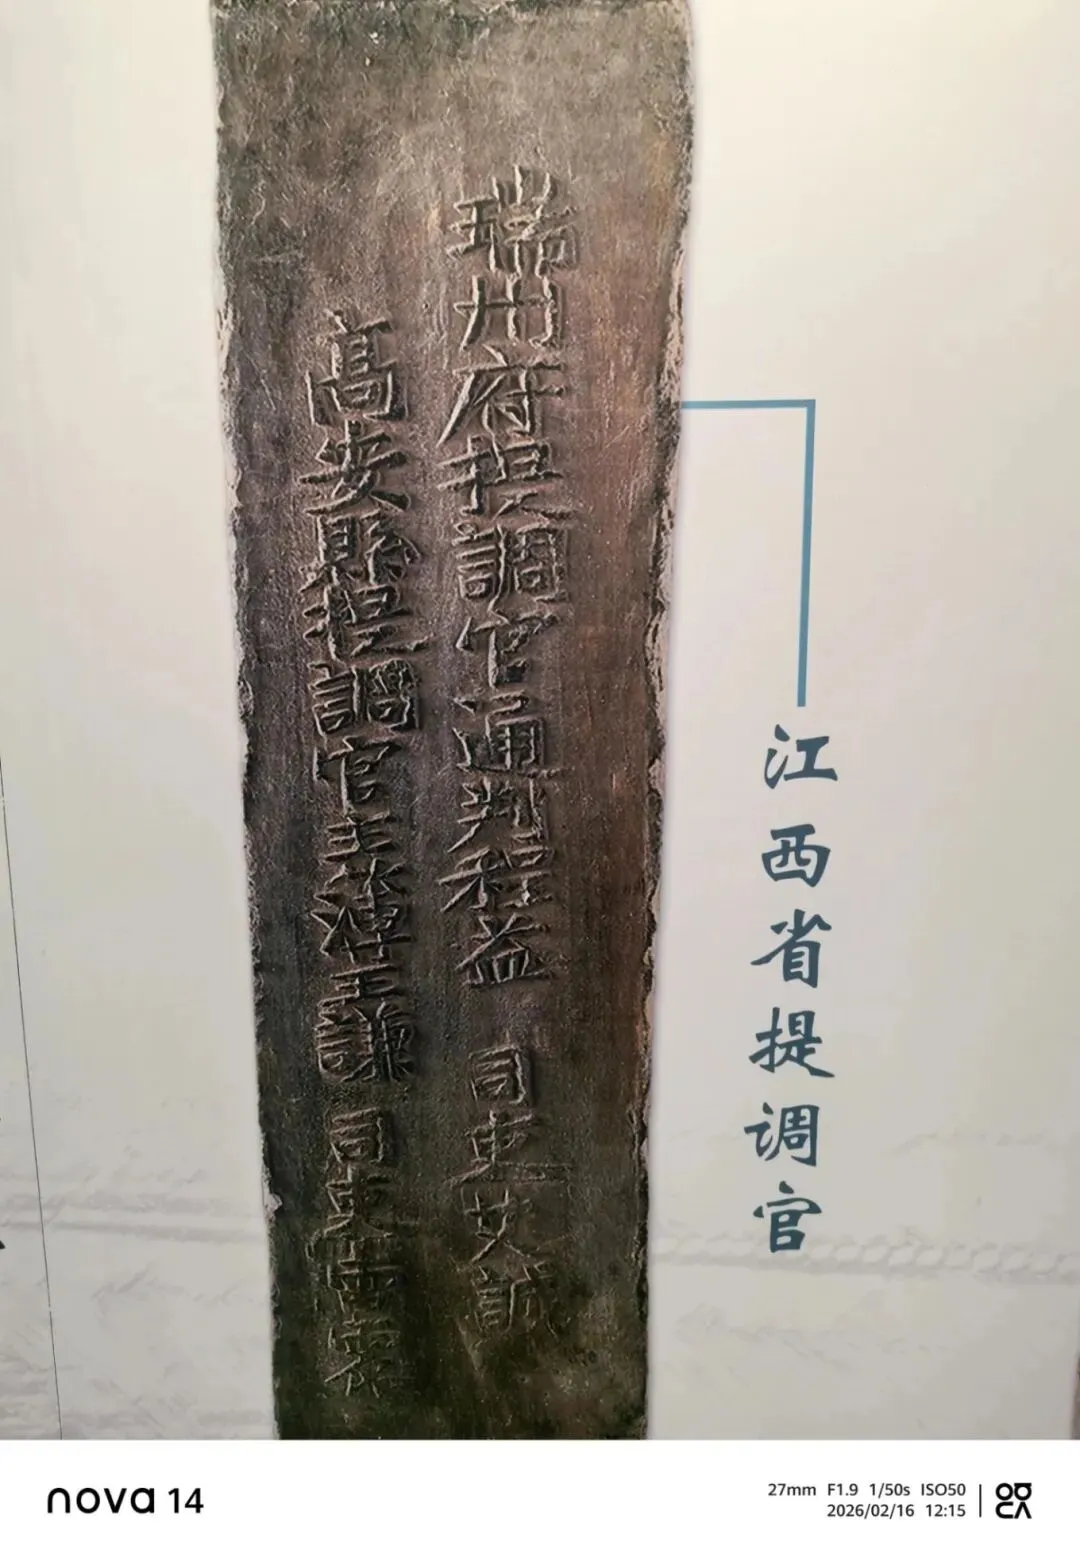 瑞州府提調官通判程益 司吏艾誠
高安縣提調官主簿王謙 司吏
江西省提调官
nova 14
27mm F1.9 1/50s ISO50
2026/02/16 12:15